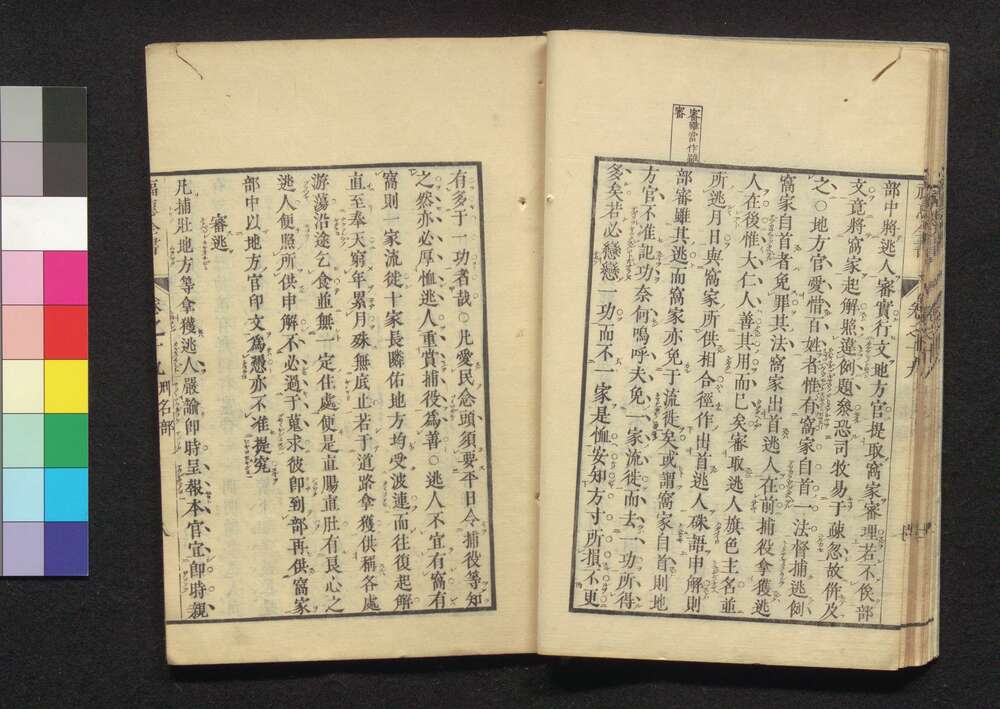 審雖當作雖
審
部中將逃人審實行文地方官提取窩家審理若不俟部
文竟將窩家起解照違例題叅恐司牧易于疎忽故併及
之〇地方官愛惜百姓者惟有窩家自首一法督捕逃例
窩家自首者免罪其法窩家出首逃人在前捕役拿獲逃
人在後惟大仁人善其用而已矣審取逃人旗色主名並
所逃月日與窩家所供相合徑作出首逃人硃語申解則
部審雖其逃而窩家亦免于流徙矣或謂窩家自首則地
方官不准記功奈何嗚呼夫免一家流徙而去一功所得
多矣若必戀戀一功而不一家是恤安知方寸所損不更
有多于一功者哉〇凡愛民念頭須要平日令捕役等知
之然亦必厚恤逃人重賞捕役爲善〇逃人不宜有窩有
窩則一家流徙十家長隣佑地方均受波連而往復起解
直至奉天窮年累月殊無底止若于道路拿獲供稱各處
游蕩沿途乞食並無一定住處便是直腸直肚有良心之
逃人便照所供申解不必過于蒐求彼卽到部再供窩家
部中以地方官印文爲慿亦不准提究
審逃
凡捕壯地方等拿獲逃人嚴諭卽時呈報本官宜卽時親
福惠全書 卷之十九 刑名部 八